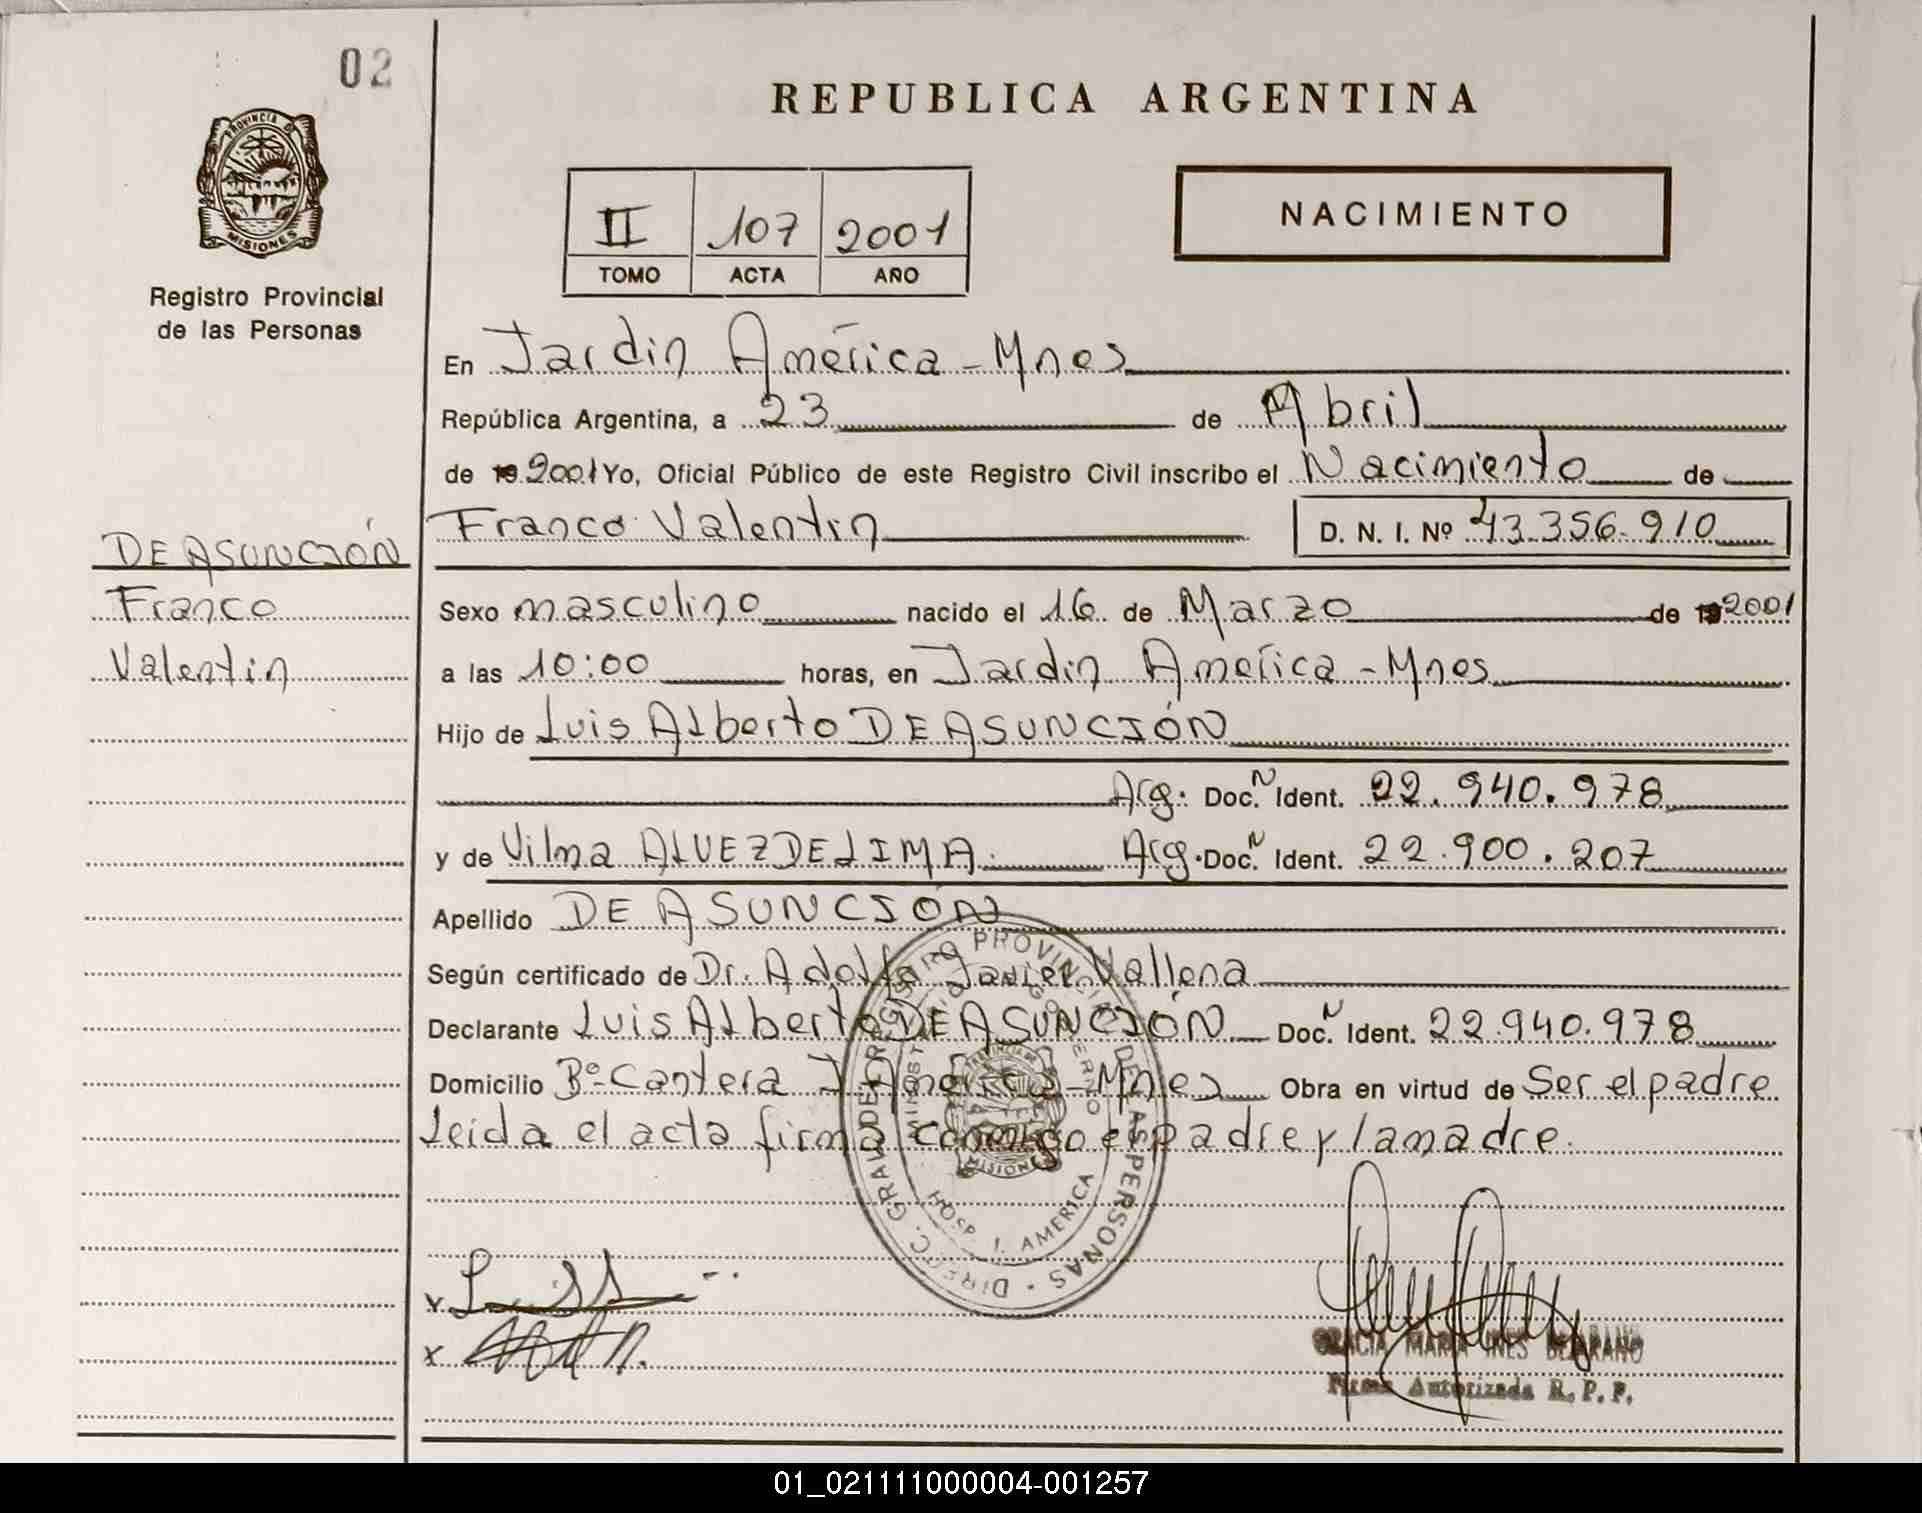 02
REPUBLICA ARGENTINA
PROVINCIA DE
MISIONES
Registro Provincial
de las Personas
II 107 2001
TOMO ACTA AÑO
NACIMIENTO
En Jardin América - Mnes
República Argentina, a 23 de Abril
de 19 2001 Yo, Oficial Público de este Registro Civil inscribo el Nacimiento de
Franco Valentin D. N. I. Nº 43.356.910
DE ASUNCIÓN
Franco
Valentin
Sexo masculino nacido el 16 de Marzo de 19 2001
a las 10:00 horas, en Jardin América - Mnes
Hijo de Luis Alberto DE ASUNCIÓN
Arg. Doc. N Ident. 22.940.978
y de Vilma ALVEZ DE LIMA. Arg. Doc. N Ident. 22.900.207
Apellido DE ASUNCIÓN
Según certificado de Dr. Adolfo Javier Vallena
Declarante Luis Alberto DE ASUNCIÓN Doc. N Ident. 22.940.978
Domicilio Bº- Cantera J. América - Mnes Obra en virtud de Ser el padre
Leida el acta firma conmigo el padre y la madre.
DIREC. GRAL. DE REGISTRO PROVINCIAL DE LAS PERSONAS
MINISTERIO DE GOBIERNO
PROVINCIA DE
MISIONES
HOSP. J. AMERICA
X
X
GRACIA MARIA INES BEJARANO
Firma Autorizada R. P. P.
01_021111000004-001257